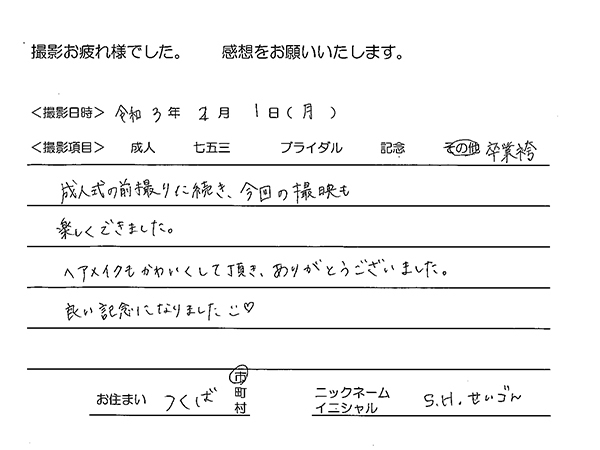 撮影お疲れ様でした。 感想をお願いいたします。
＜撮影日時＞ 令和3年2月1日(月)
＜撮影項目＞ 成人 七五三 ブライダル 記念 その他 卒業袴
成人式の前撮りに続き、今回の撮映も
楽しくできました。
ヘアメイクもかわいくして頂き、ありがとうございました。
良い記念になりました♡
お住まい つくば 市町村 ニックネーム イニシャル S.H. せいゴん